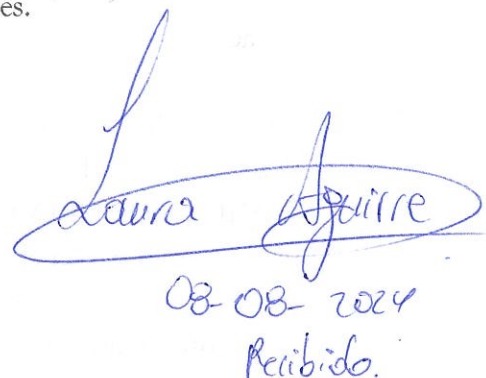 es.
Laura Aguirre
08-08-2024
Recibido.